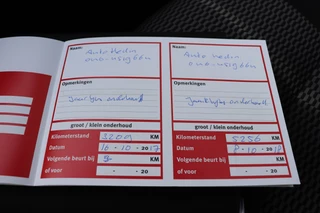 Naam:
Auto Media
Opmerkingen
jaarlijks onderhoud
groot / klein onderhoud
Kilometerstand 3209 KM
Datum 16 - 10 - 2017
Volgende beurt bij KM
of voor - - 20
Naam:
Auto Media
Opmerkingen
jaarlijks onderhoud
groot / klein onderhoud
Kilometerstand 5256 KM
Datum 8 - 10 - 2018
Volgende beurt bij KM
of voor - - 20